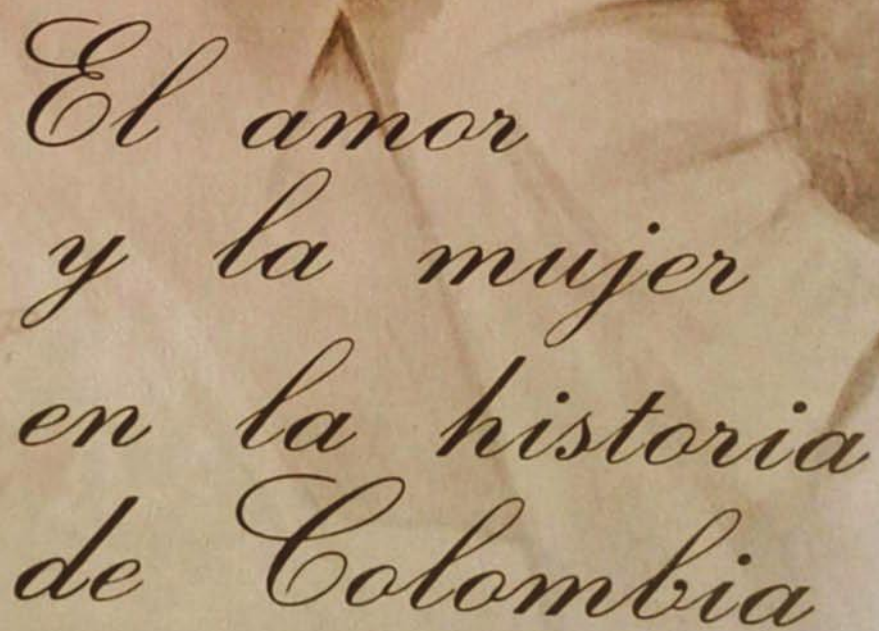 El amor
y la mujer
en la historia
de Colombia